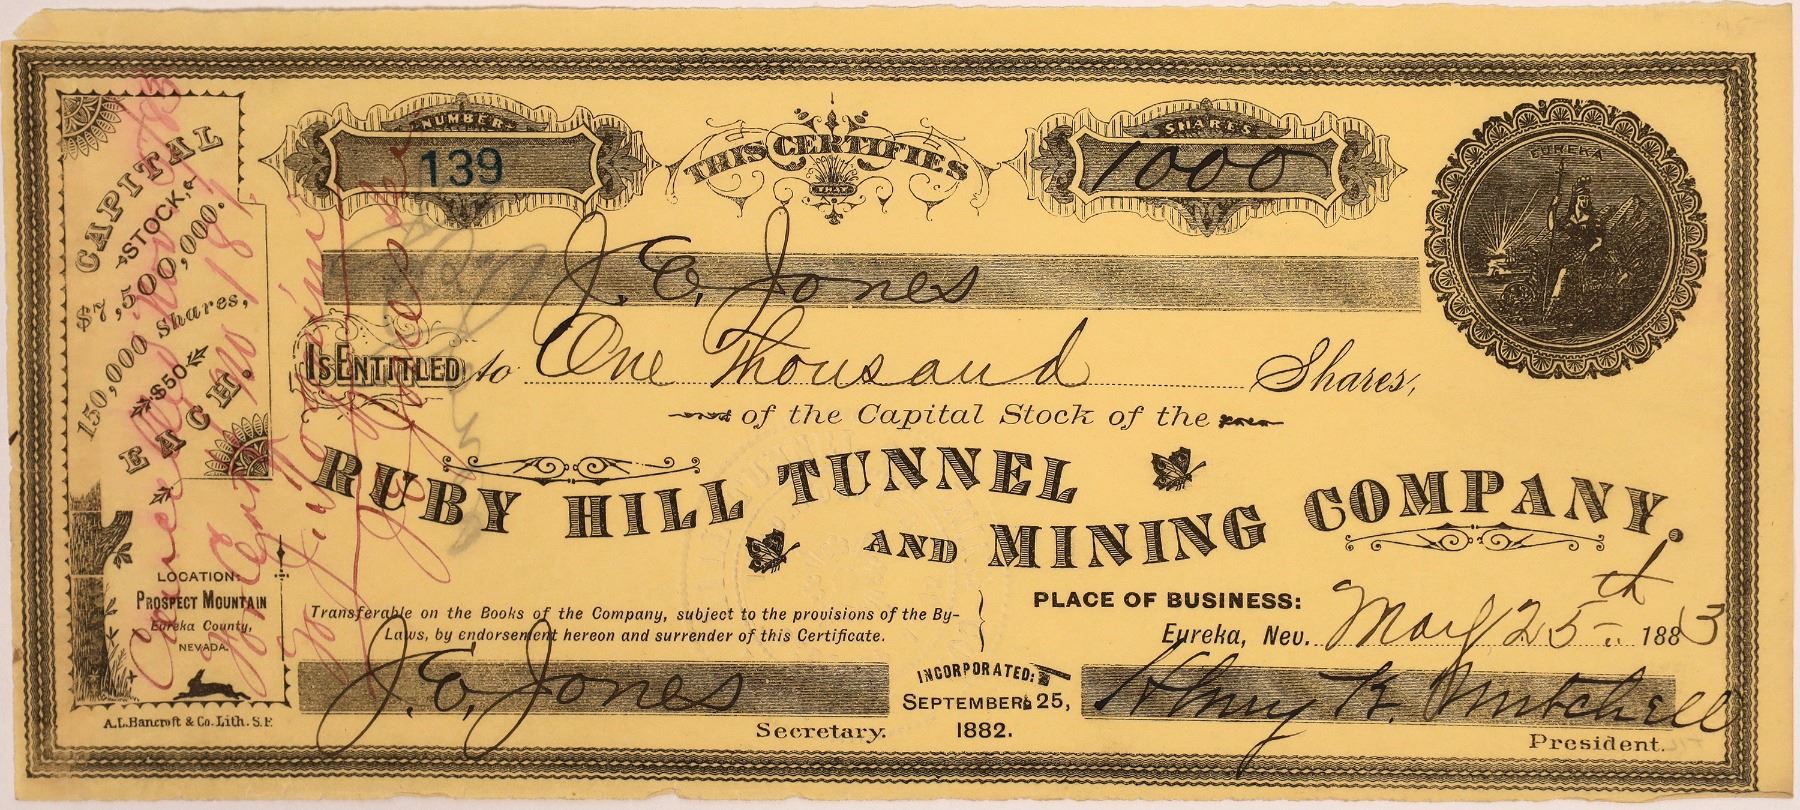 NUMBER
139
THIS CERTIFIES
THAT
SHARES
1000
EUREKA
CAPITAL
STOCK,
$7,500,000.
150,000 Shares,
$50
EACH.
J. E. Jones
IS ENTITLED to One Thousand Shares,
of the Capital Stock of the
RUBY HILL TUNNEL
AND MINING COMPANY.
LOCATION:
PROSPECT MOUNTAIN
Eureka County,
NEVADA.
Transferable on the Books of the Company, subject to the provisions of the By-
Laws, by endorsement hereon and surrender of this Certificate.
PLACE OF BUSINESS:
Eureka, Nev. May 25th 1883
J. E. Jones
Secretary.
INCORPORATED:
SEPTEMBER 25,
1882.
Henry K. Mitchell
President.
A.L.Bancroft & Co. Lith. S.F.